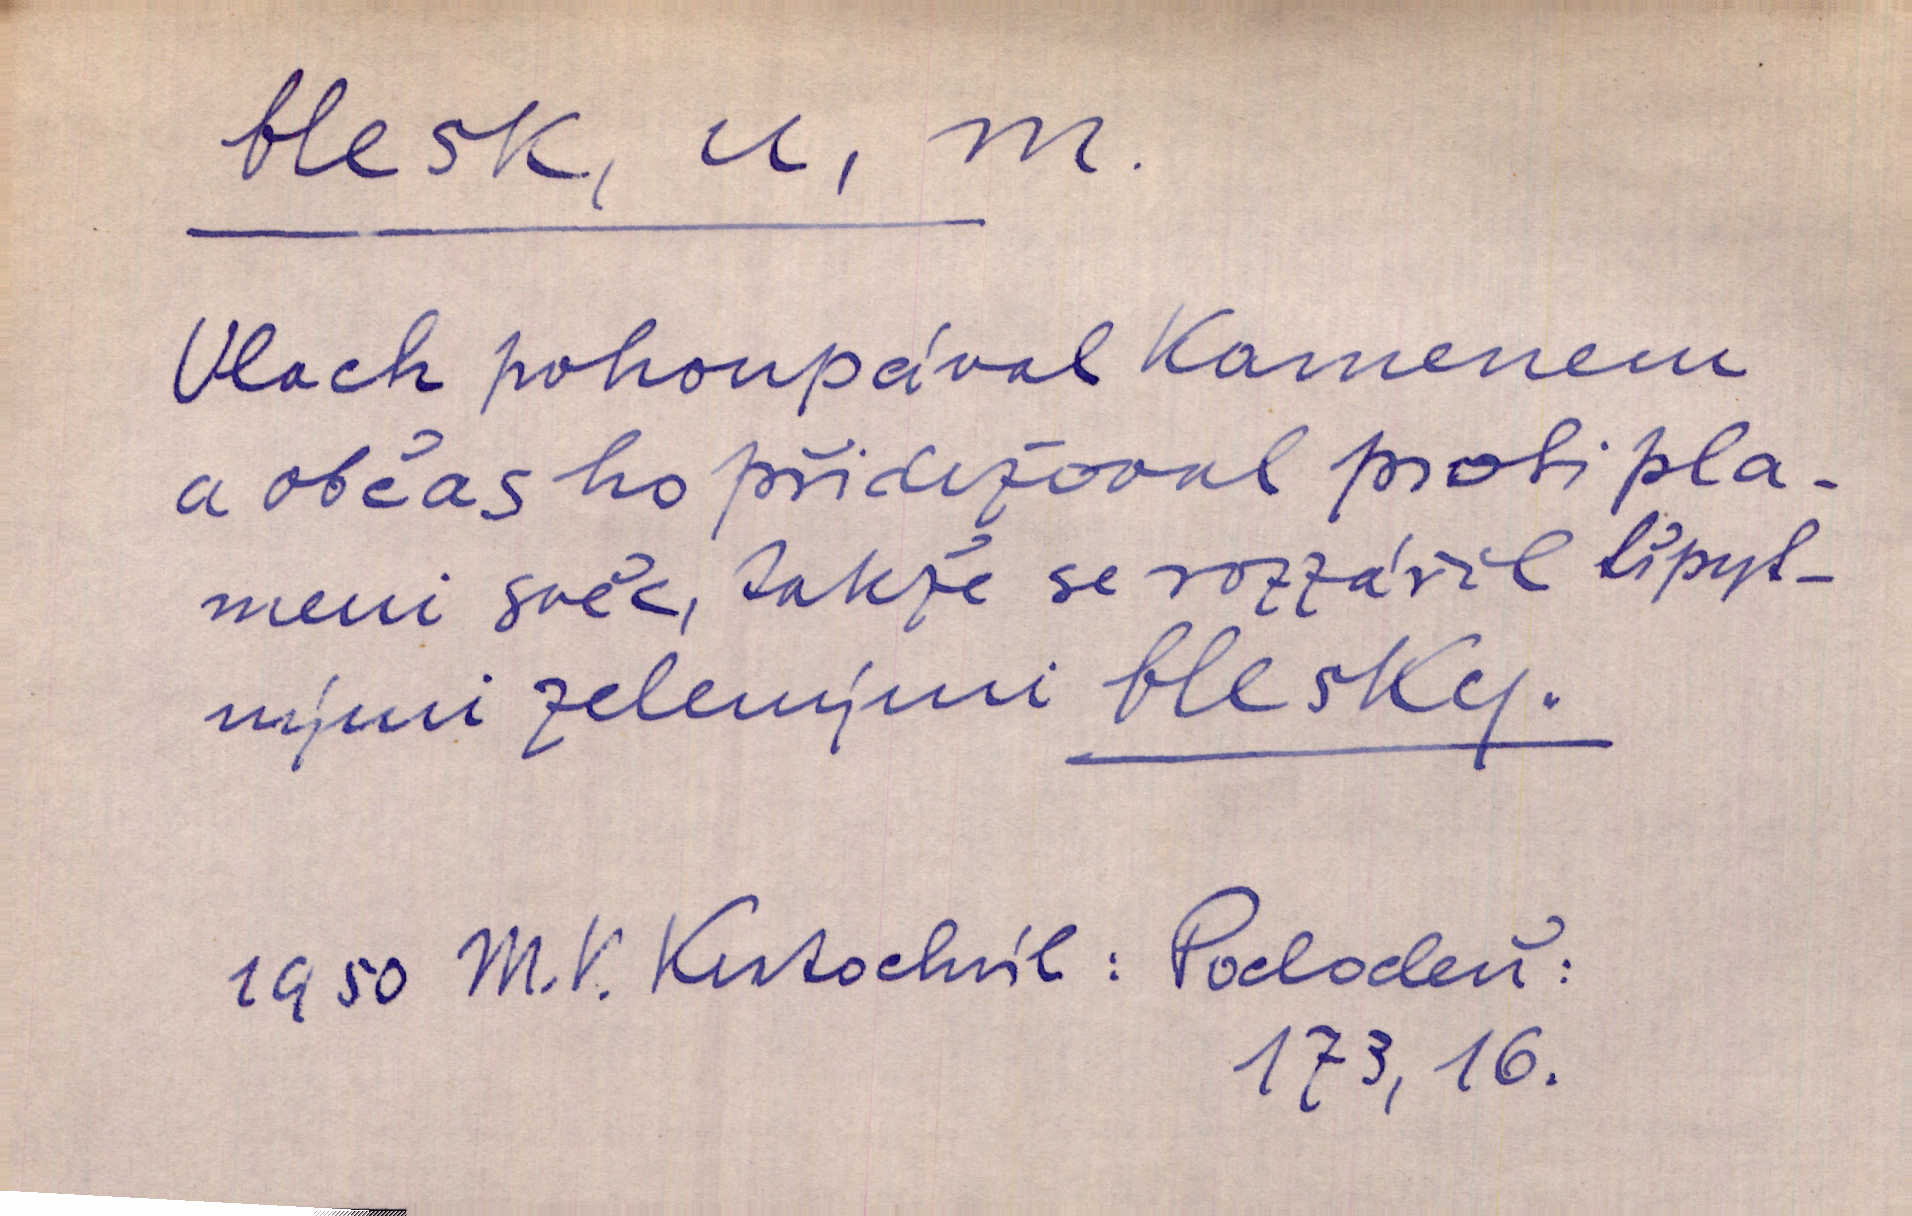 blesk, u, m.
Vlach pohoupával Kamenem
a občas ho přidržoval proti pla-
meni svěc, takže se rozzářil třpyt-
nými zelenými blesky.
1950 M.V. Kratochvil: Podoben:
173, 16.